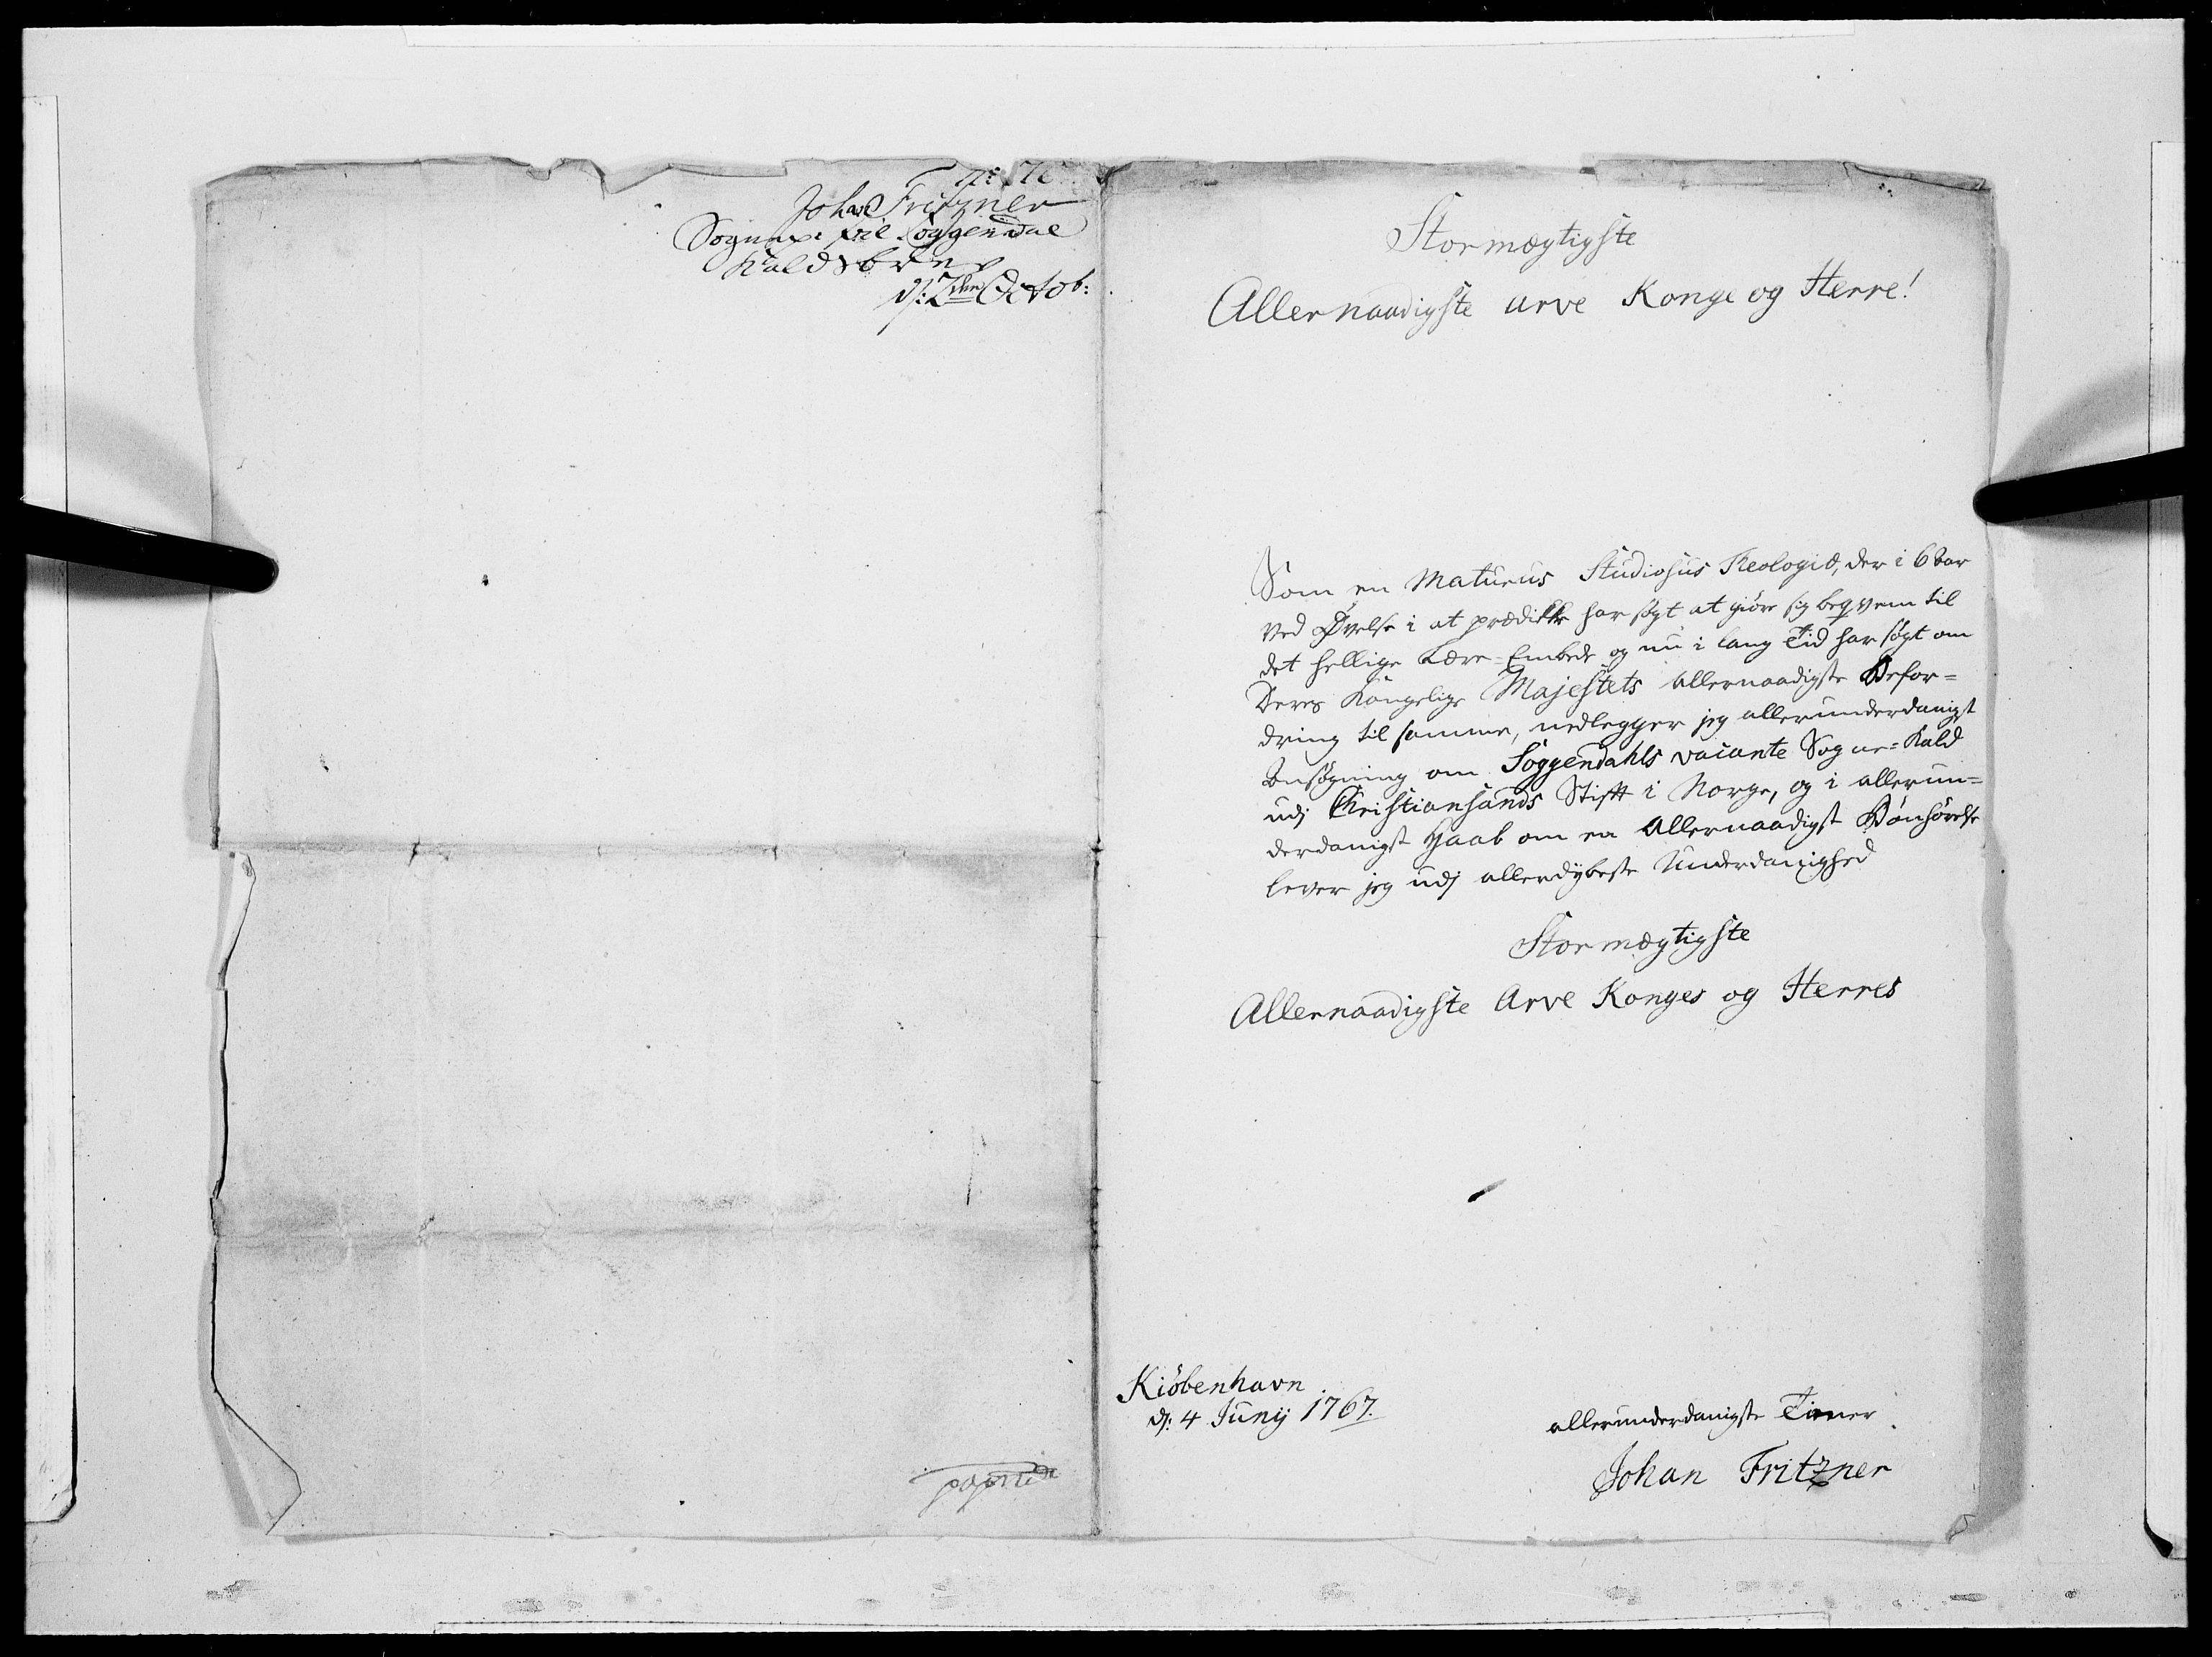 Johan Fritzner
Sognepr: til Soggendal
Kaldsbrev
d: 2den Octob:
Stormægtigste
Allernaadigste Arve Konge og Herre!
Som en Maturus Studiosus Theologiæ, der i 6 Aar
ved Øvelse i at prædikke har søgt at giöre sig beqvem til
det hellige Lære-Embede og nu i lang Tid har søgt om
Deres Kongelige Majestets allernaadigste Befor=
dring til samme, nedlegger jeg allerunderdanigst
Ansøgning om Soggendahls vacante Sogne=Kald
udj Christiansands Stift i Norge, og i allerun=
derdanigst Haab om en Allernaadigst Bönhörelse
lever jeg udj allerdybeste Underdanighed
Stormægtigste
Allernaadigste Arve Konges og Herres
Kiöbenhavn
d: 4 Junij 1767.
allerunderdanigste Tiener
Johan Fritzner